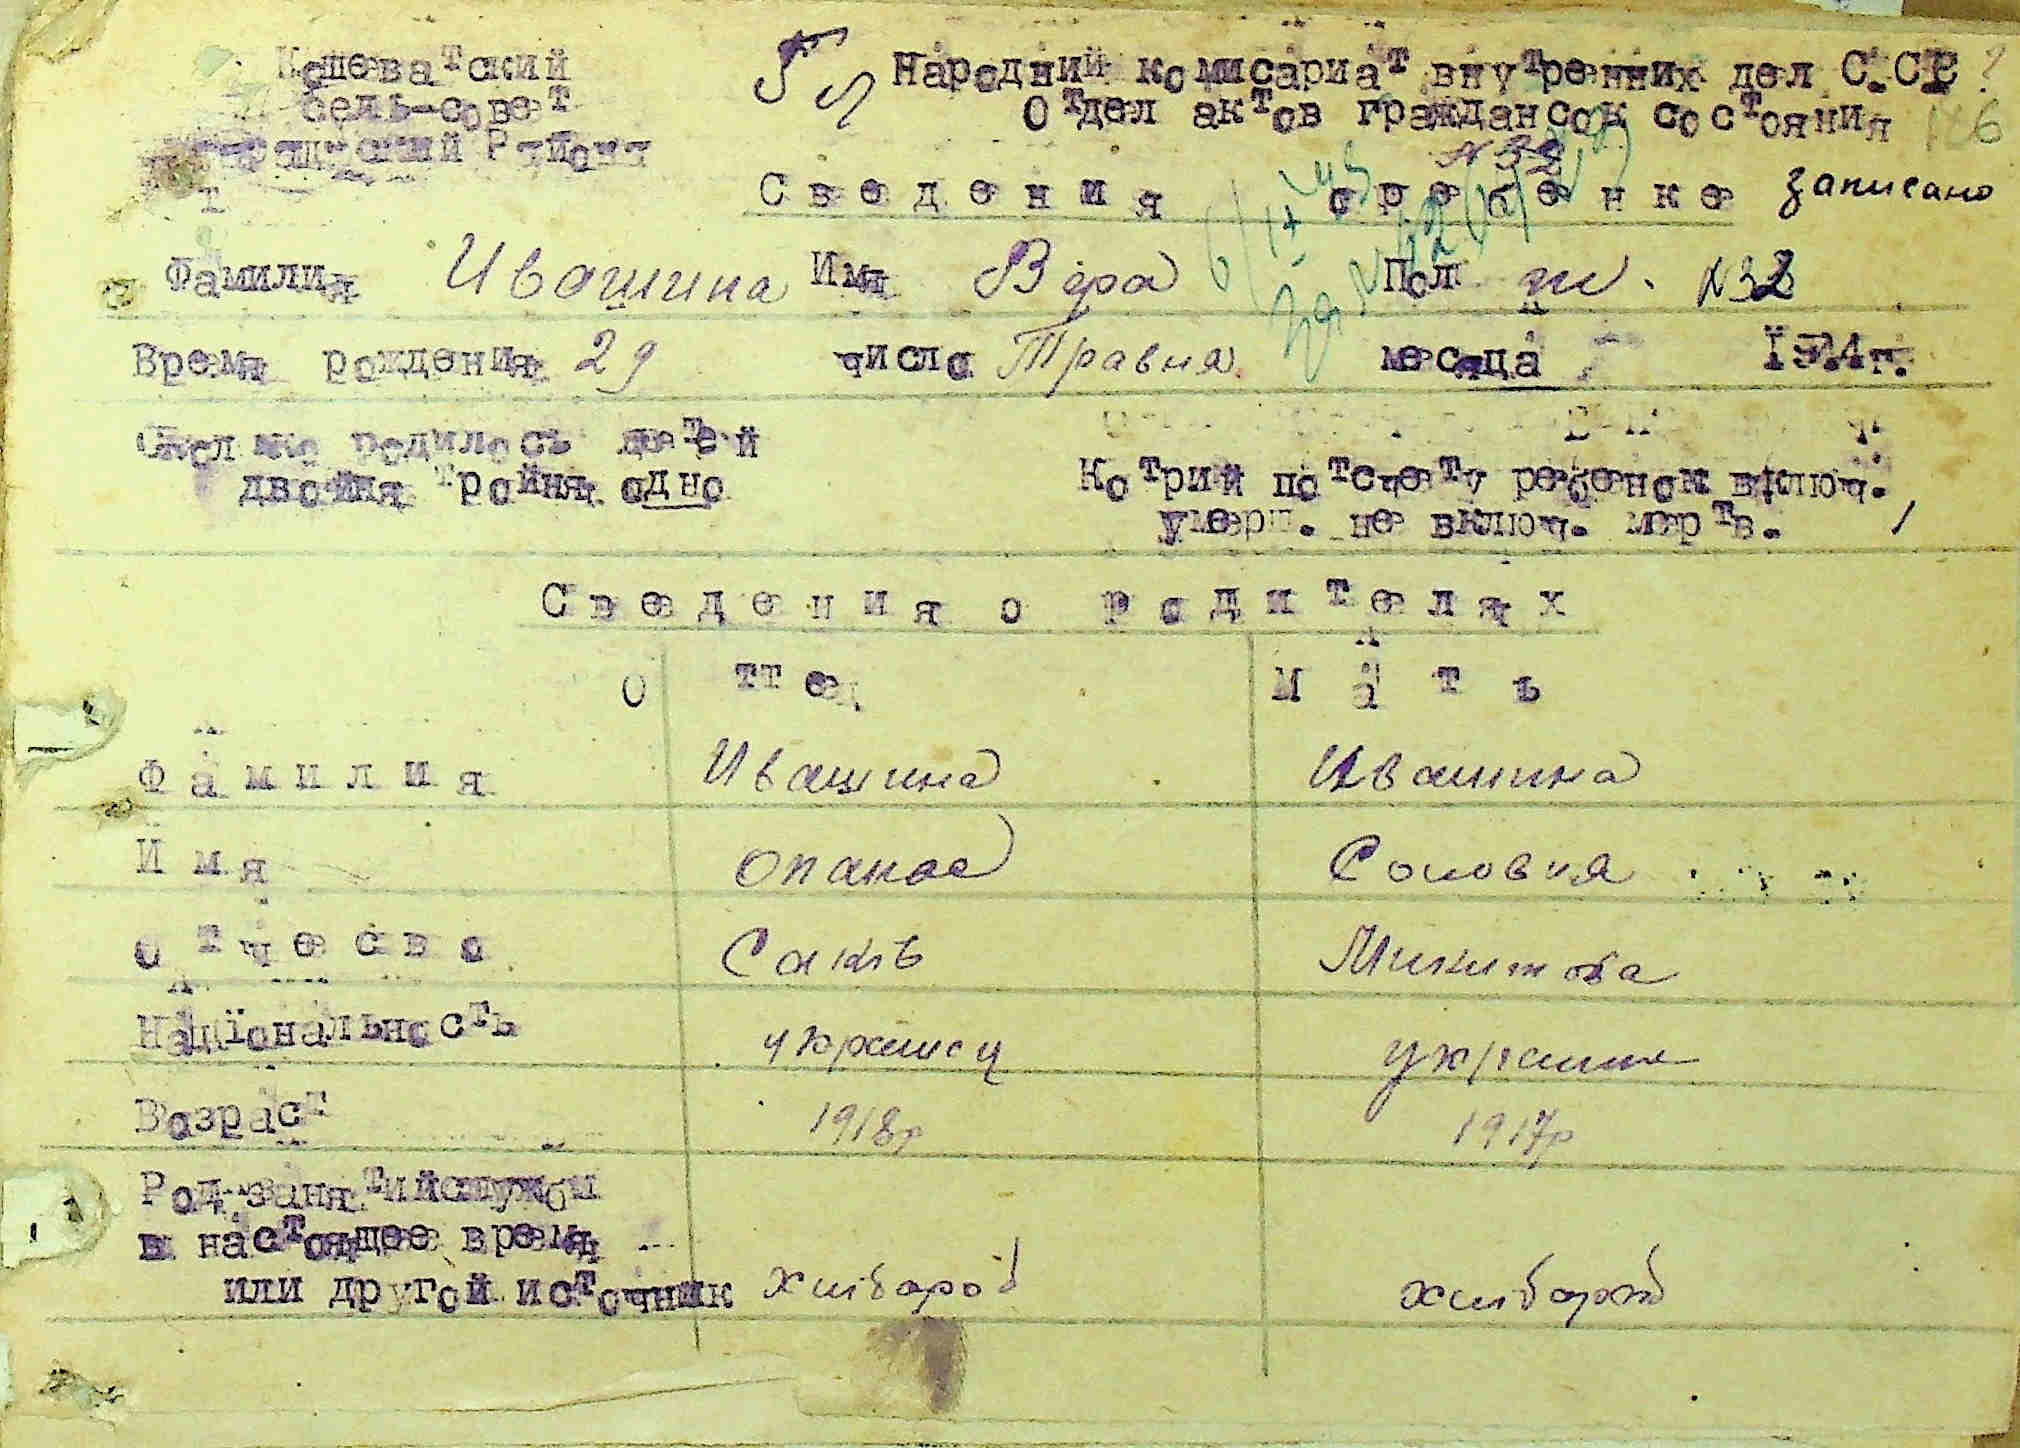 Кошеватский
сель-совет
Района
Народний комисариат внутренних дел С.СР
Отдел актов граждансок состояния
N 32
Сведения оребенке записано
Фамилия Ивашина Имя Віра Пол ж. N32
Время рождения 29 число Травня месяца
родилось детей
двойня тройня одно
Котрий потсчету ребенок включ.
умерш. не включ. мертв. 1
Сведения о родителях
Оттец Мать
Фамилия Ивашина Ивашина
Имя Опанас Соловія
Отчесво Саків Микитова
Національность українец україн
Возраст 1918р 1917р
Род занятийслужби
в настоящее время
или другой источник хлібороб хлібороб